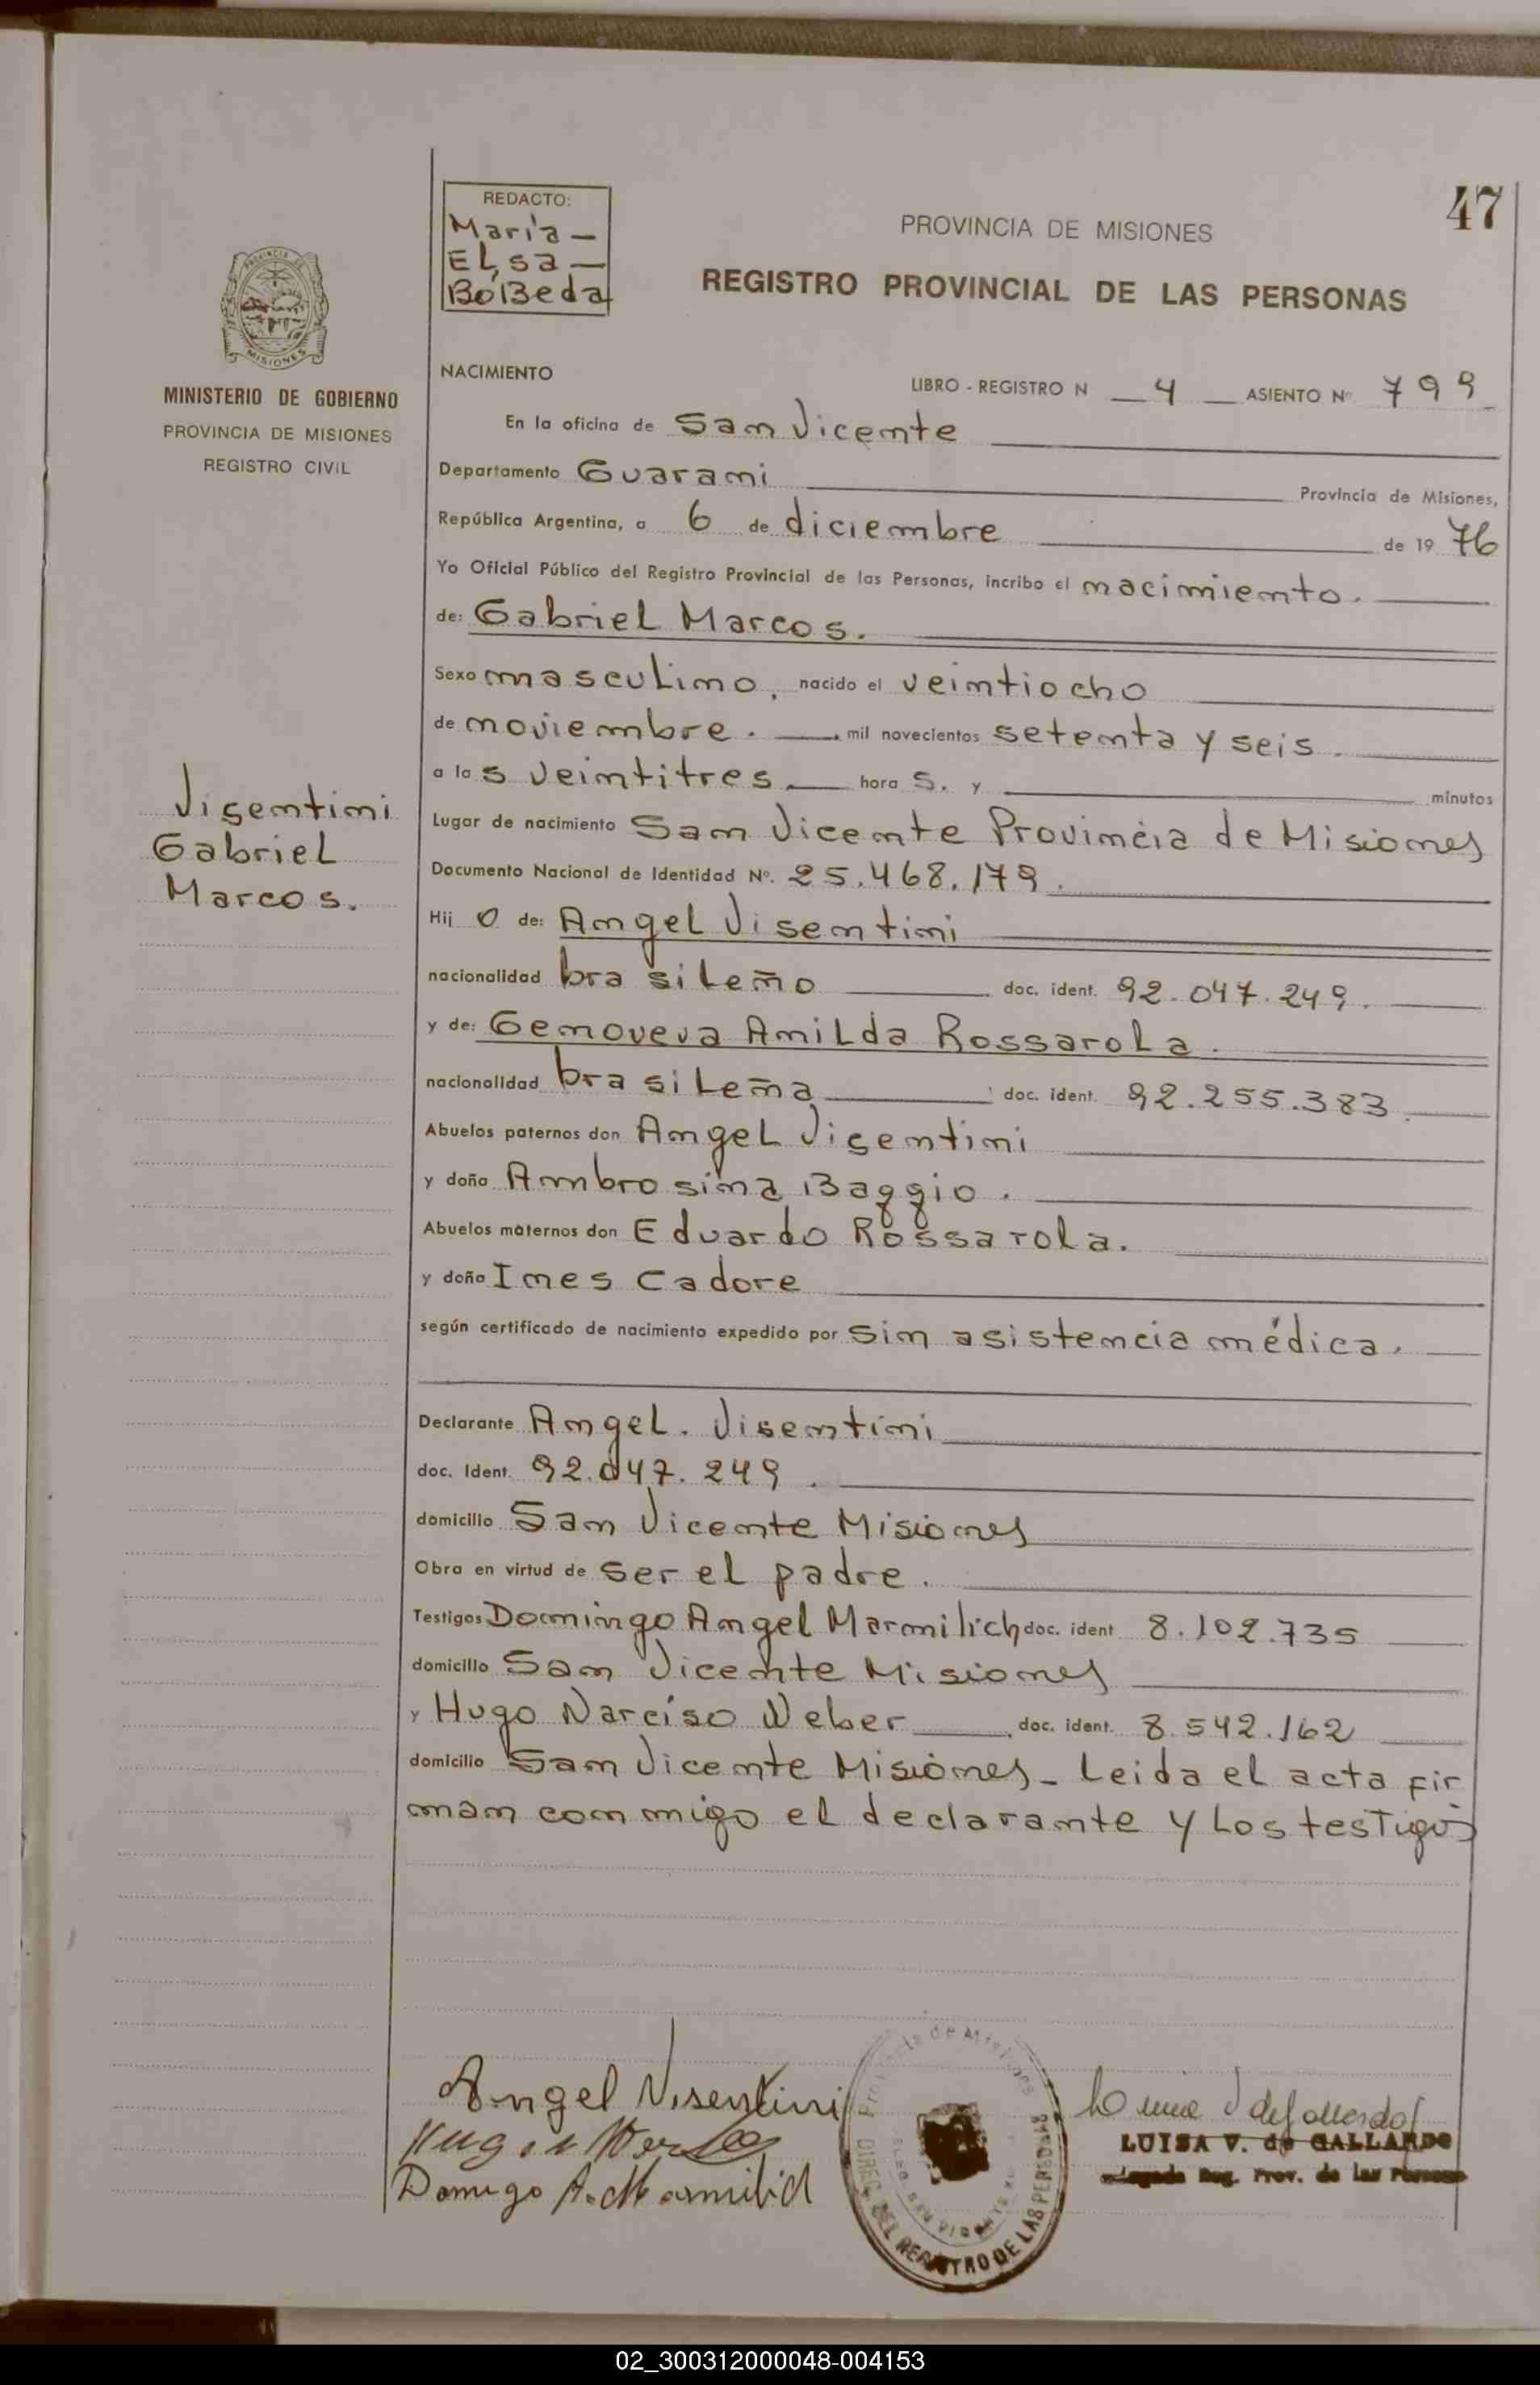 47
REDACTO:
María -
Elsa -
BóBeda
PROVINCIA DE MISIONES
REGISTRO PROVINCIAL DE LAS PERSONAS
MISIONES
MINISTERIO DE GOBIERNO
PROVINCIA DE MISIONES
REGISTRO CIVIL
NACIMIENTO
LIBRO - REGISTRO N 4 ASIENTO Nº 799
En la oficina de San Vicente
Departamento Guarani Provincia de Misiones,
República Argentina, a 6 de diciembre de 19 76
Yo Oficial Público del Registro Provincial de las Personas, incribo el nacimiento.
de: Gabriel Marcos.
Sexo masculino, nacido el veintiocho
de noviembre. mil novecientos setenta y seis.
a las veintitres hora s. y minutos
Visentini
Gabriel
Marcos.
Lugar de nacimiento San Vicente Provincia de Misiones
Documento Nacional de Identidad Nº. 25.468.179.
Hij o de: Angel Visentini
nacionalidad brasileño doc. ident. 92.047.249.
y de: Genoveva Anilda Rossarola.
nacionalidad brasileña doc. ident. 92.255.383
Abuelos paternos don Angel Visentini
y doña Ambrosina Baggio.
Abuelos maternos don Eduardo Rossarola.
y doña Ines Cadore
según certificado de nacimiento expedido por sin asistencia médica.
Declarante Angel. Visentini
doc. Ident. 92.047.249.
domicilio San Vicente Misiones
Obra en virtud de ser el padre.
Testigos Domingo Angel Marmilich doc. ident 8.102.735
domicilio San Vicente Misiones
y Hugo Narciso Weber doc. ident. 8.542.162
domicilio San Vicente Misiones - Leida el acta fir
man conmigo el declarante y los testigos
Angel Visentini
Domingo A. Marmilich
Provincia de Misiones
DIREC. DEL REGISTRO DE LAS PERSONAS
SAN VICENTE
LUISA V. de GALLARDO
Delegada Reg. Prov. de las Personas
02_300312000048-004153